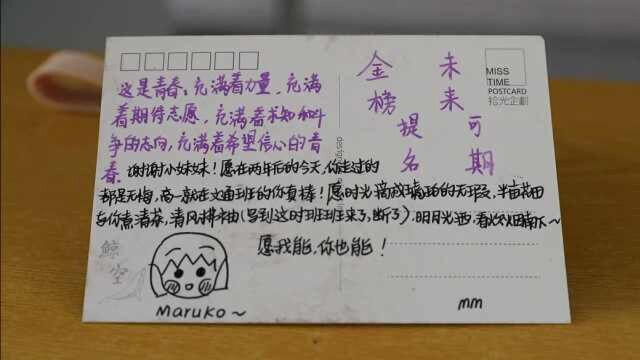 这是青春:充满着力量,充满
着期待志愿,充满着求知和斗
争的志向,充满着希望信心的青
春.
谢谢小妹妹!愿在两年后的今天,你走过的
都是无悔,高一就在文通班的你真棒!愿时光
与你煮清茶,清风拂衣袖(写到这时班班来了,断了),明月光洒,看
愿我能,你也能!
金榜提名
未来可期
MISS
TIME
POSTCARD
拾光企劃
鲸空
Maruko~
mm